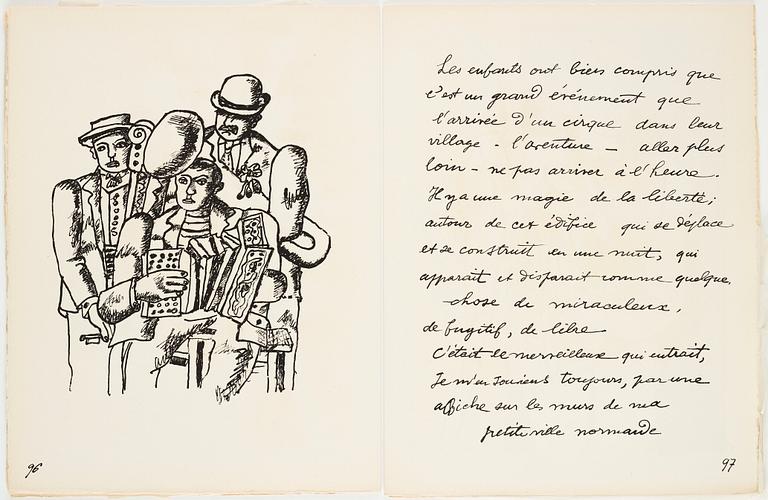 Les enfants ont bien compris que
c'est un grand événement que
l'arrivée d'un cirque dans leur
village - l'aventure - aller plus
loin - ne pas arriver à l'heure.
Il y a une magie de la liberté;
autour de cet édifice qui se déplace
et se construit en une nuit, qui
apparait et disparait comme quelque
chose de miraculeux,
de fugitif, de libre
C'était le merveilleux qui entrait,
Je m'en souviens toujours, par une
affiche sur les murs de ma
petite ville normande
96
97